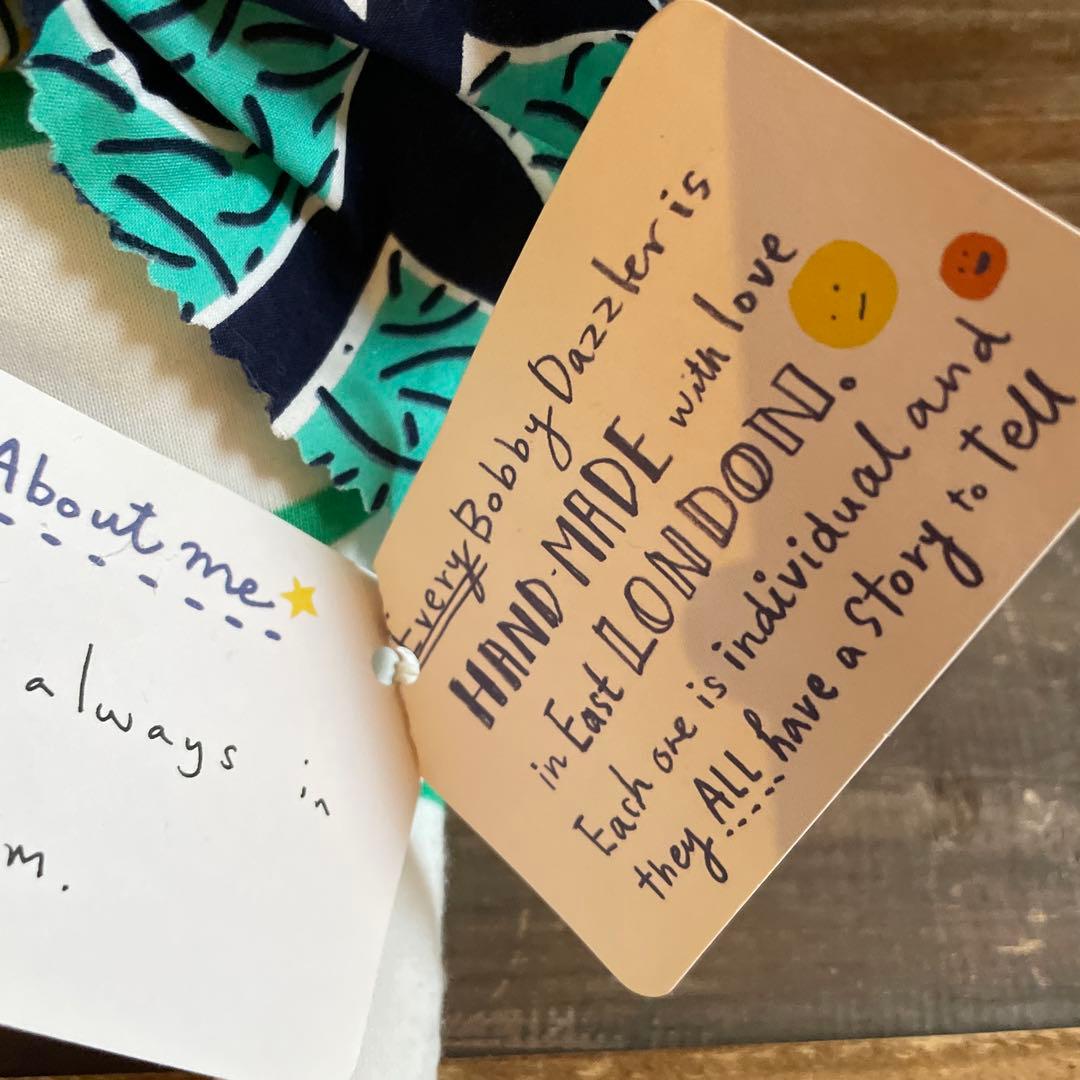 About me
always in
m.
Every Bobby Dazzler is
HAND-MADE with love
in East LONDON.
Each one is individual and
they ALL have a story to tell